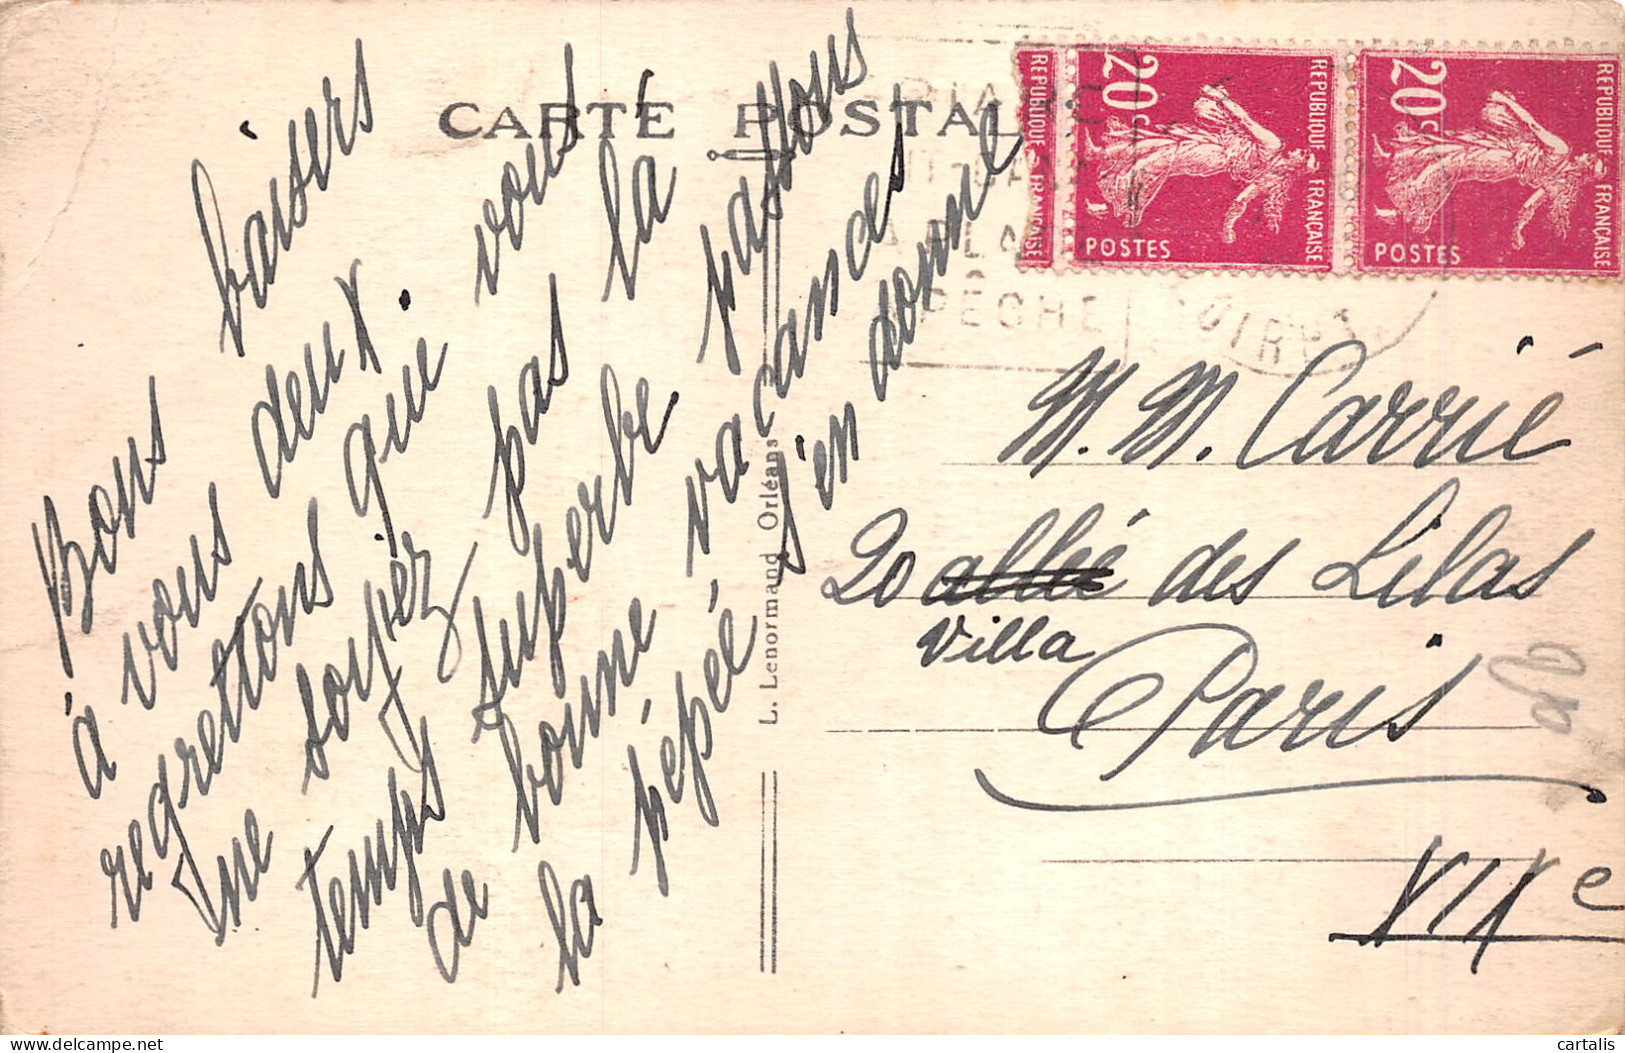 CARTE POSTALE
Bons baisers
à vous deux,
regrettons que vous
ne soyez pas là
temps superbe passons
de bonne vacances
la pépée s'en donne
L. Lenormand Orléans
REPUBLIQUE FRANÇAISE
20c
POSTES
REPUBLIQUE FRANÇAISE
20c
POSTES
REPUBLIQUE FRANÇAISE
PÊCHE
LOIRET
M. M. Carrié
20 allée des Lilas
Villa
Paris
XIXe
cartalis
delcampe.net